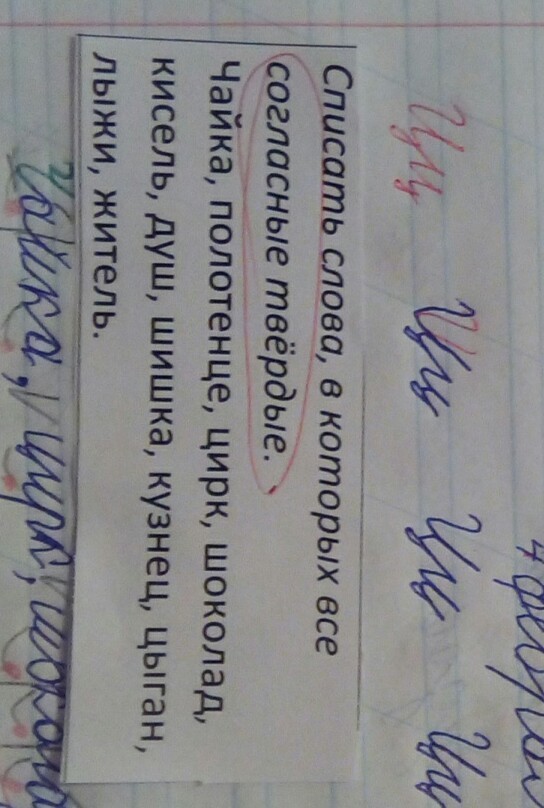 4 февраля
Цц Цц Цц Цц
Списать слова, в которых все
согласные твёрдые.
Чайка, полотенце, цирк, шоколад,
кисель, душ, шишка, кузнец, цыган,
лыжи, житель.
Чайка, цирк, шокола